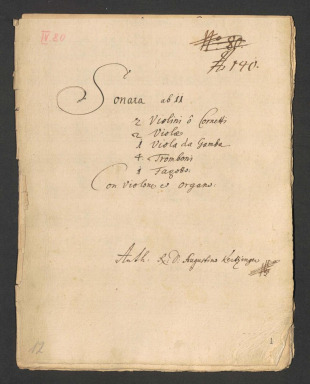 IV. 80
No. 80.
No 140.
Sonata ab 11
2 Violini ô Cornetti
2 Violæ
1 Viola da Gamba
4 Tromboni
1 Fagotto
Con Violone et Organo.
Auth. R. D. Augustino Kertzinger
12
1